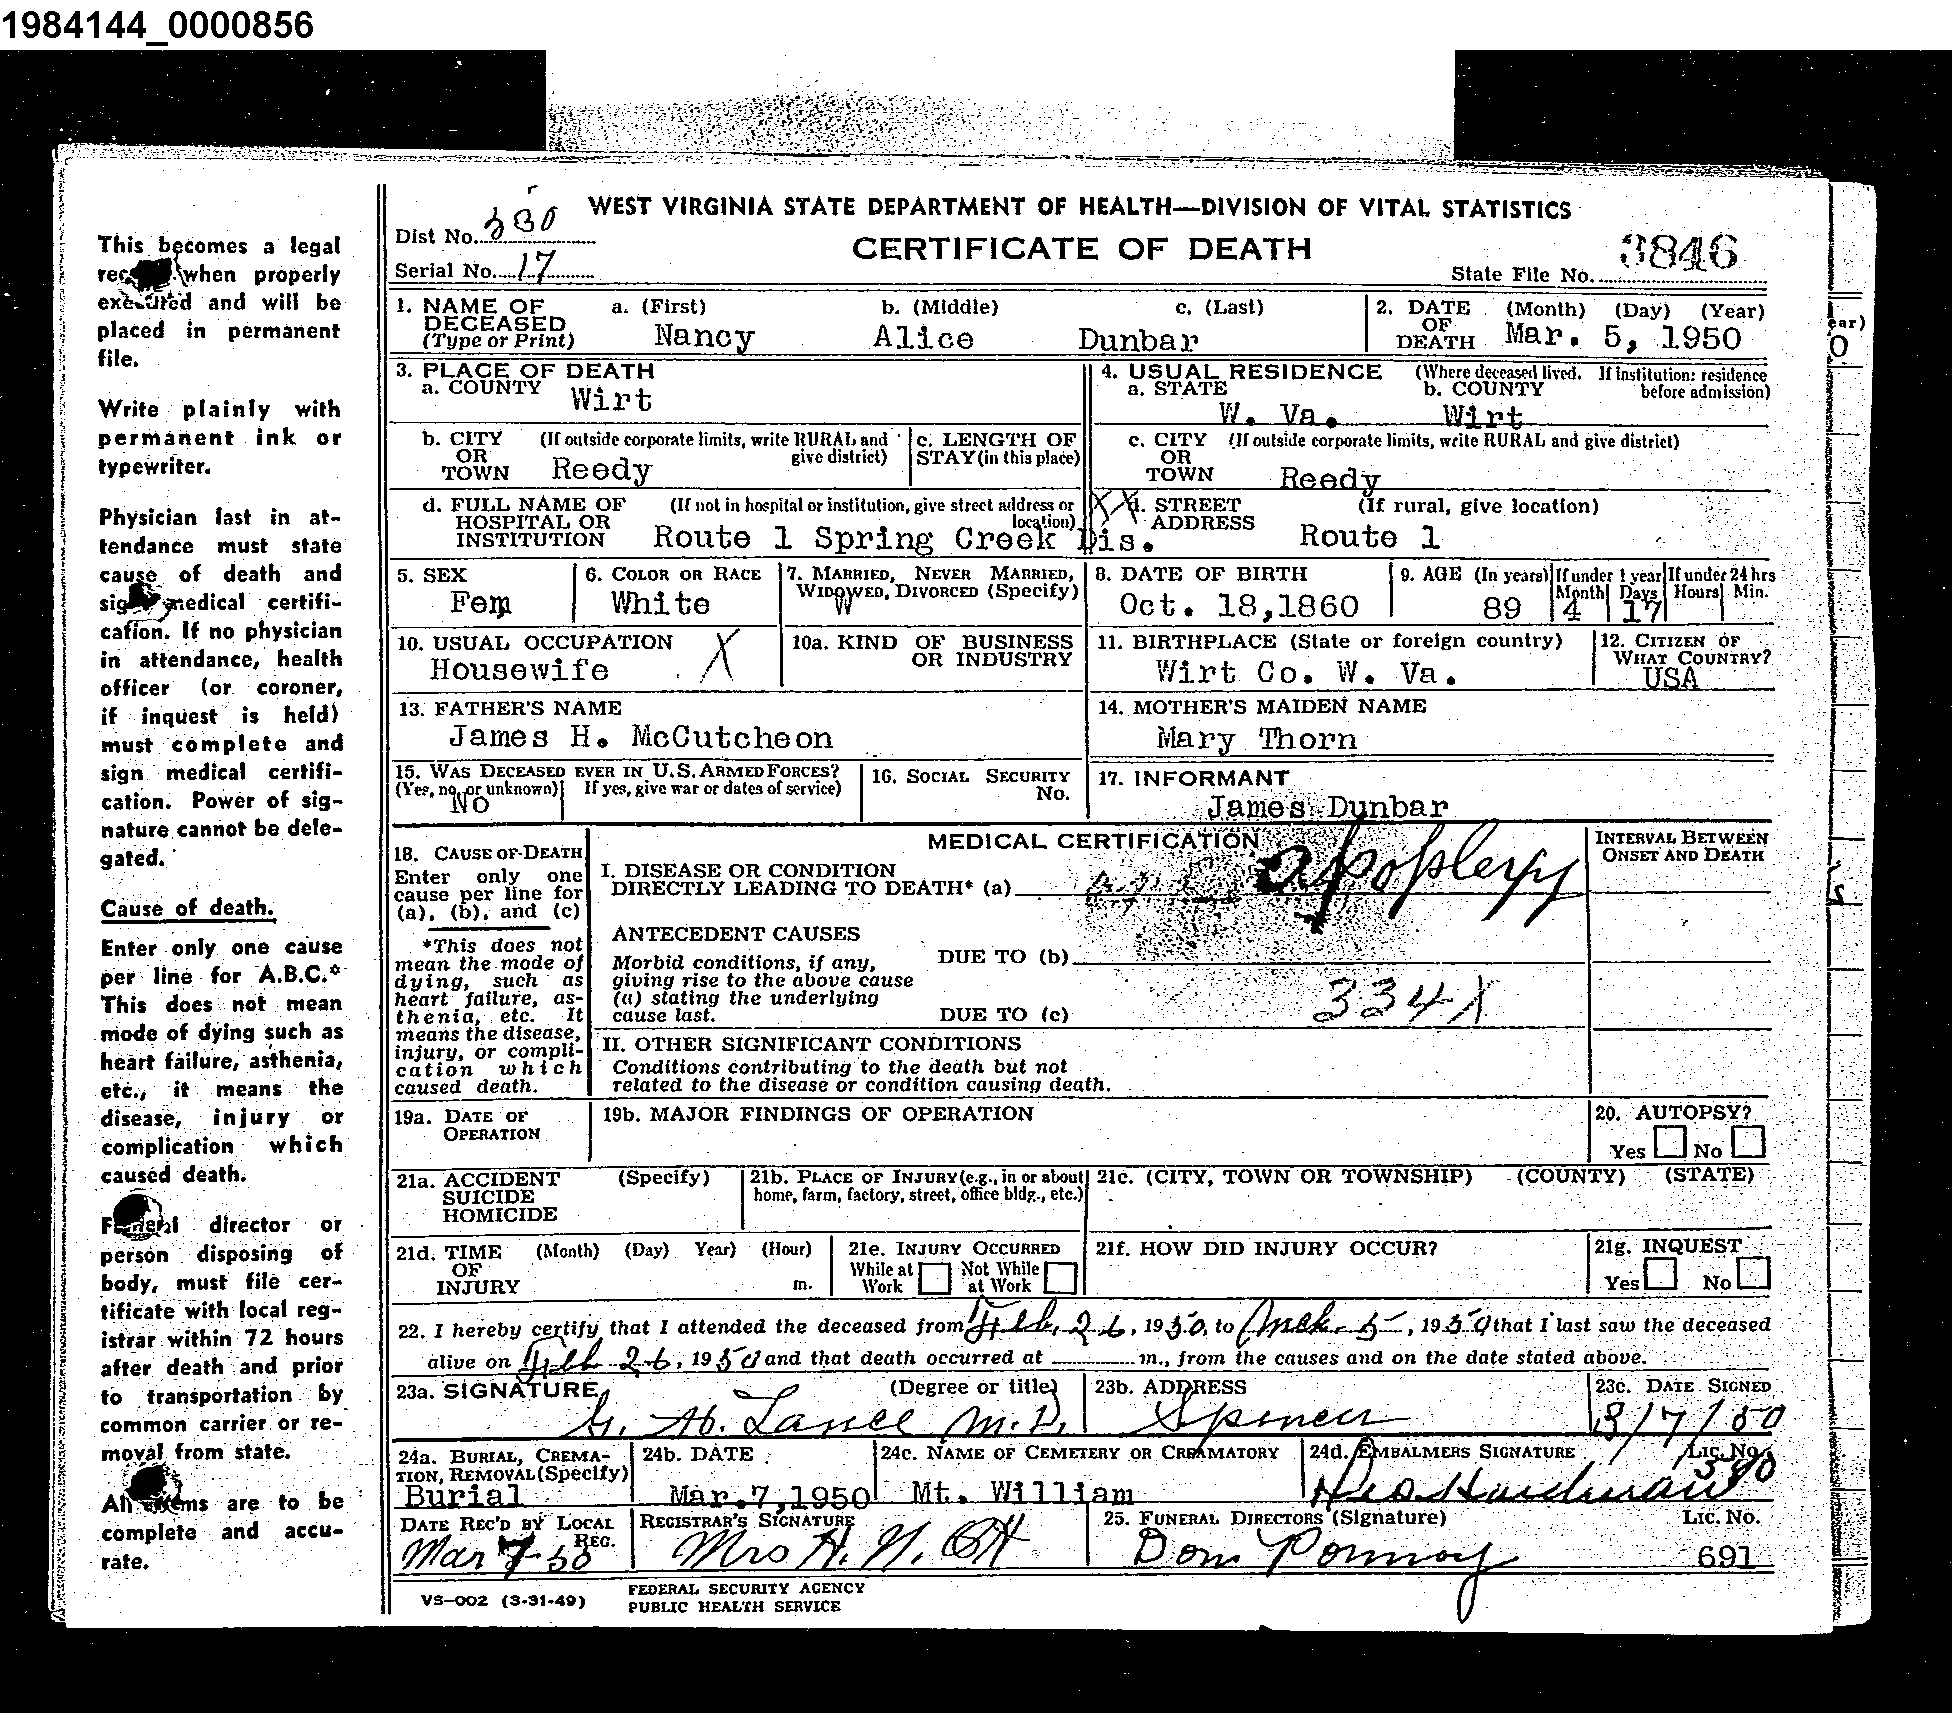 1984144_0000856
This becomes a legal
when properly
executed and will be
placed in permanent
file.
Write plainly with
permanent ink or
typewriter.
Physician last in at-
tendance must state
cause of death and
sign medical certifi-
cation. If no physician
in attendance, health
officer (or coroner,
if inquest is held)
must complete and
sign medical certifi-
cation. Power of sig-
nature cannot be dele-
gated.
Cause of death.
Enter only one cause
per line for A.B.C.*
This does not mean
mode of dying such as
heart failure, asthenia,
etc., it means the
disease, injury or
complication which
caused death.
Funeral director or
person disposing of
body, must file cer-
tificate with local reg-
istrar within 72 hours
after death and prior
to transportation by
common carrier or re-
moval from state.
All items are to be
complete and accu-
rate.
WEST VIRGINIA STATE DEPARTMENT OF HEALTH—DIVISION OF VITAL STATISTICS
Dist No.
CERTIFICATE OF DEATH
Serial No. 17
State File No. 3846
1. NAME OF DECEASED (Type or Print) a. (First) b. (Middle) c. (Last)
Nancy Alice Dunbar
2. DATE OF DEATH (Month) (Day) (Year)
Mar. 5, 1950
3. PLACE OF DEATH
a. COUNTY Wirt
4. USUAL RESIDENCE (Where deceased lived. If institution: residence before admission)
a. STATE b. COUNTY
W. Va. Wirt
b. CITY OR TOWN (If outside corporate limits, write RURAL and give district)
Reedy
c. LENGTH OF STAY (in this place)
c. CITY OR TOWN (If outside corporate limits, write RURAL and give district)
Reedy
d. FULL NAME OF HOSPITAL OR INSTITUTION (If not in hospital or institution, give street address or location)
Route 1 Spring Creek Dis.
XX d. STREET ADDRESS (If rural, give location)
Route 1
5. SEX
Fem
6. COLOR OR RACE
White
7. MARRIED, NEVER MARRIED, WIDOWED, DIVORCED (Specify)
W
8. DATE OF BIRTH
Oct. 18,1860
9. AGE (In years) If under 1 year Month Days If under 24 hrs Hours Min.
89 4 17
10. USUAL OCCUPATION
Housewife X
10a. KIND OF BUSINESS OR INDUSTRY
11. BIRTHPLACE (State or foreign country)
Wirt Co. W. Va.
12. CITIZEN OF WHAT COUNTRY?
USA
13. FATHER'S NAME
James H. McCutcheon
14. MOTHER'S MAIDEN NAME
Mary Thorn
15. WAS DECEASED EVER IN U.S. ARMED FORCES?
(Yes, no, or unknown) If yes, give war or dates of service)
No
16. SOCIAL SECURITY No.
17. INFORMANT
James Dunbar
18. CAUSE OF DEATH
Enter only one
cause per line for
(a), (b), and (c)
*This does not
mean the mode of
dying, such as
heart failure, as-
thenia, etc. It
means the disease,
injury, or compli-
cation which
caused death.
MEDICAL CERTIFICATION
I. DISEASE OR CONDITION
DIRECTLY LEADING TO DEATH* (a) apoplexy
ANTECEDENT CAUSES
Morbid conditions, if any,
giving rise to the above cause
(a) stating the underlying
cause last.
DUE TO (b)
DUE TO (c)
334X
INTERVAL BETWEEN ONSET AND DEATH
II. OTHER SIGNIFICANT CONDITIONS
Conditions contributing to the death but not
related to the disease or condition causing death.
19a. DATE OF OPERATION
19b. MAJOR FINDINGS OF OPERATION
20. AUTOPSY?
Yes No
21a. ACCIDENT SUICIDE HOMICIDE (Specify)
21b. PLACE OF INJURY (e.g., in or about home, farm, factory, street, office bldg., etc.)
21c. (CITY, TOWN OR TOWNSHIP) (COUNTY) (STATE)
21d. TIME OF INJURY (Month) (Day) Year) (Hour) m.
21e. INJURY OCCURRED
While at Work Not While at Work
21f. HOW DID INJURY OCCUR?
21g. INQUEST
Yes No
22. I hereby certify that I attended the deceased from Feb. 26, 1950, to Mch. 5, 1950 that I last saw the deceased
alive on Feb 26, 1950 and that death occurred at m., from the causes and on the date stated above.
23a. SIGNATURE (Degree or title)
Lance M.D.
23b. ADDRESS
Spencer
23c. DATE SIGNED
3/7/50
24a. BURIAL, CREMA-
TION, REMOVAL (Specify)
Burial
24b. DATE
Mar.7,1950
24c. NAME OF CEMETERY OR CREMATORY
Mt. William
24d. EMBALMERS SIGNATURE Lic. No.
Hardman
DATE REC'D BY LOCAL REG.
Mar 7-50
REGISTRAR'S SIGNATURE
Mrs H. N. Ott
25. FUNERAL DIRECTORS (Signature) Lic. No.
691
VS-002 (3-31-49)
FEDERAL SECURITY AGENCY
PUBLIC HEALTH SERVICE